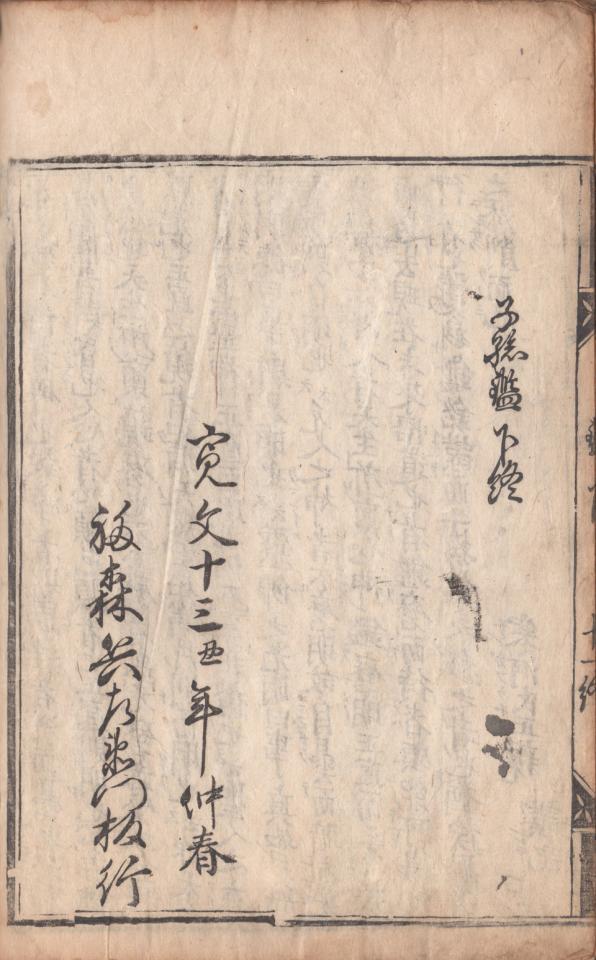 子孫鑑下終
寛文十三丑年仲春
福森兵左衛門板行